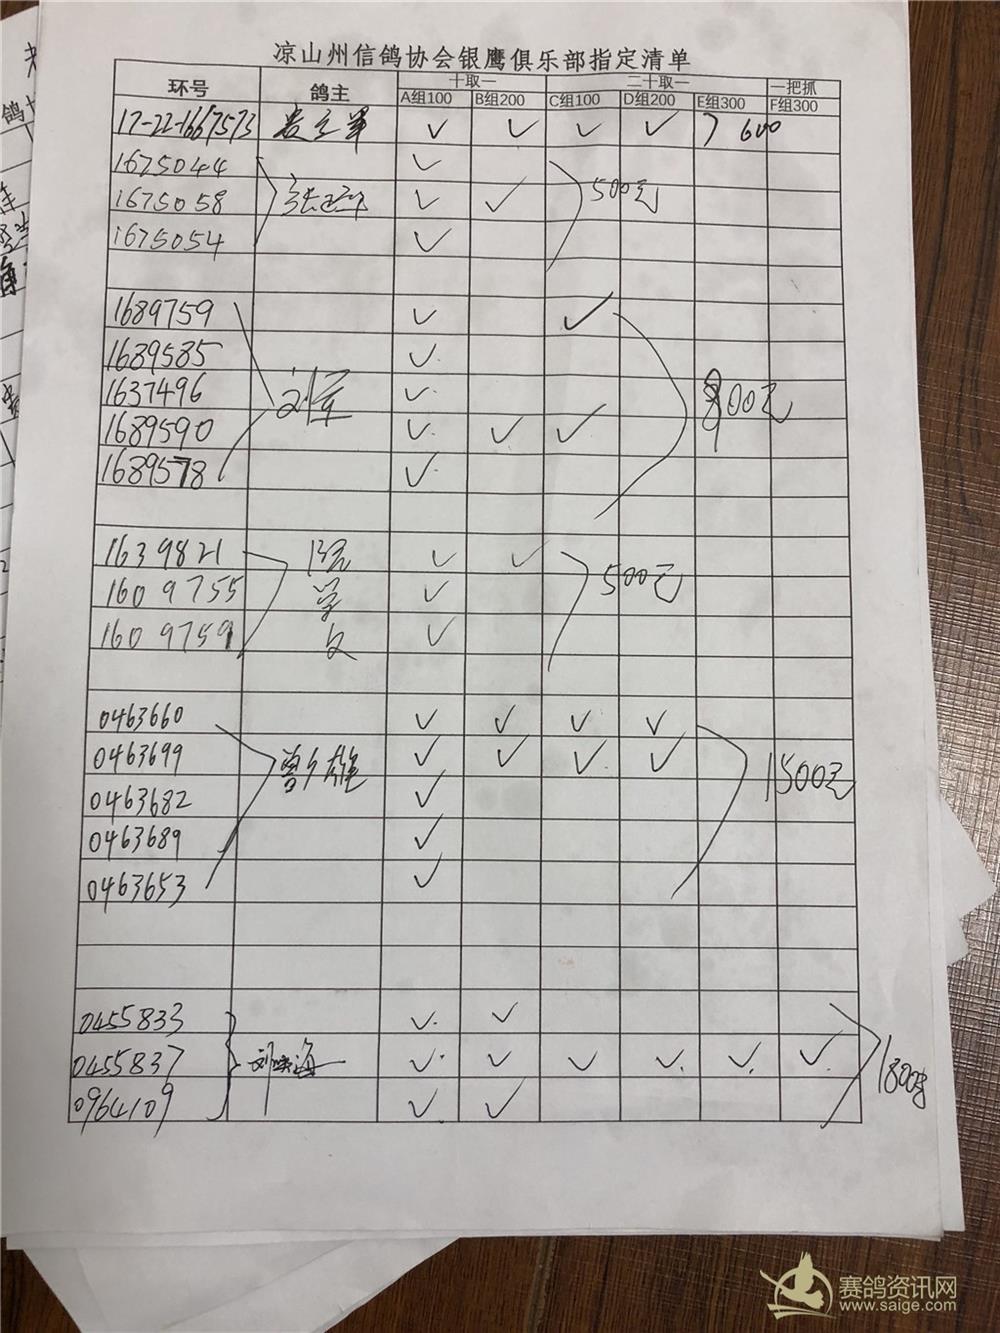 凉山州信鸽协会银鹰俱乐部指定清单
环号 鸽主 十取一 二十取一 一把抓
A组100 B组200 C组100 D组200 E组300 F组300
17-22-1667573 ✓ ✓ ✓ ✓ 600
1675044 ✓
1675058 ✓ ✓ 500元
1675054 ✓
1689759 ✓ ✓
1689585 ✓
1637496 ✓ 900元
1689590 刘军 ✓ ✓ ✓
1689578 ✓
1639821 ✓ ✓
1609755 学 ✓ 500元
1609759 文 ✓
0463660 ✓ ✓ ✓ ✓
0463699 曾乡雄 ✓ ✓ ✓ ✓
0463682 ✓ 1500元
0463689 ✓
0463653 ✓
0455833 ✓ ✓
0455837 ✓ ✓ ✓ ✓ ✓ ✓ 1800
0964109 ✓ ✓
赛鸽资讯网
www.saige.com